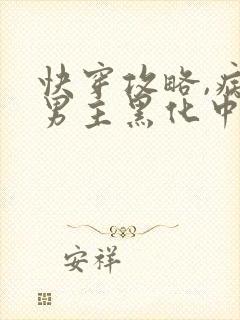 快穿攻略,病
男主黑化中
安祥